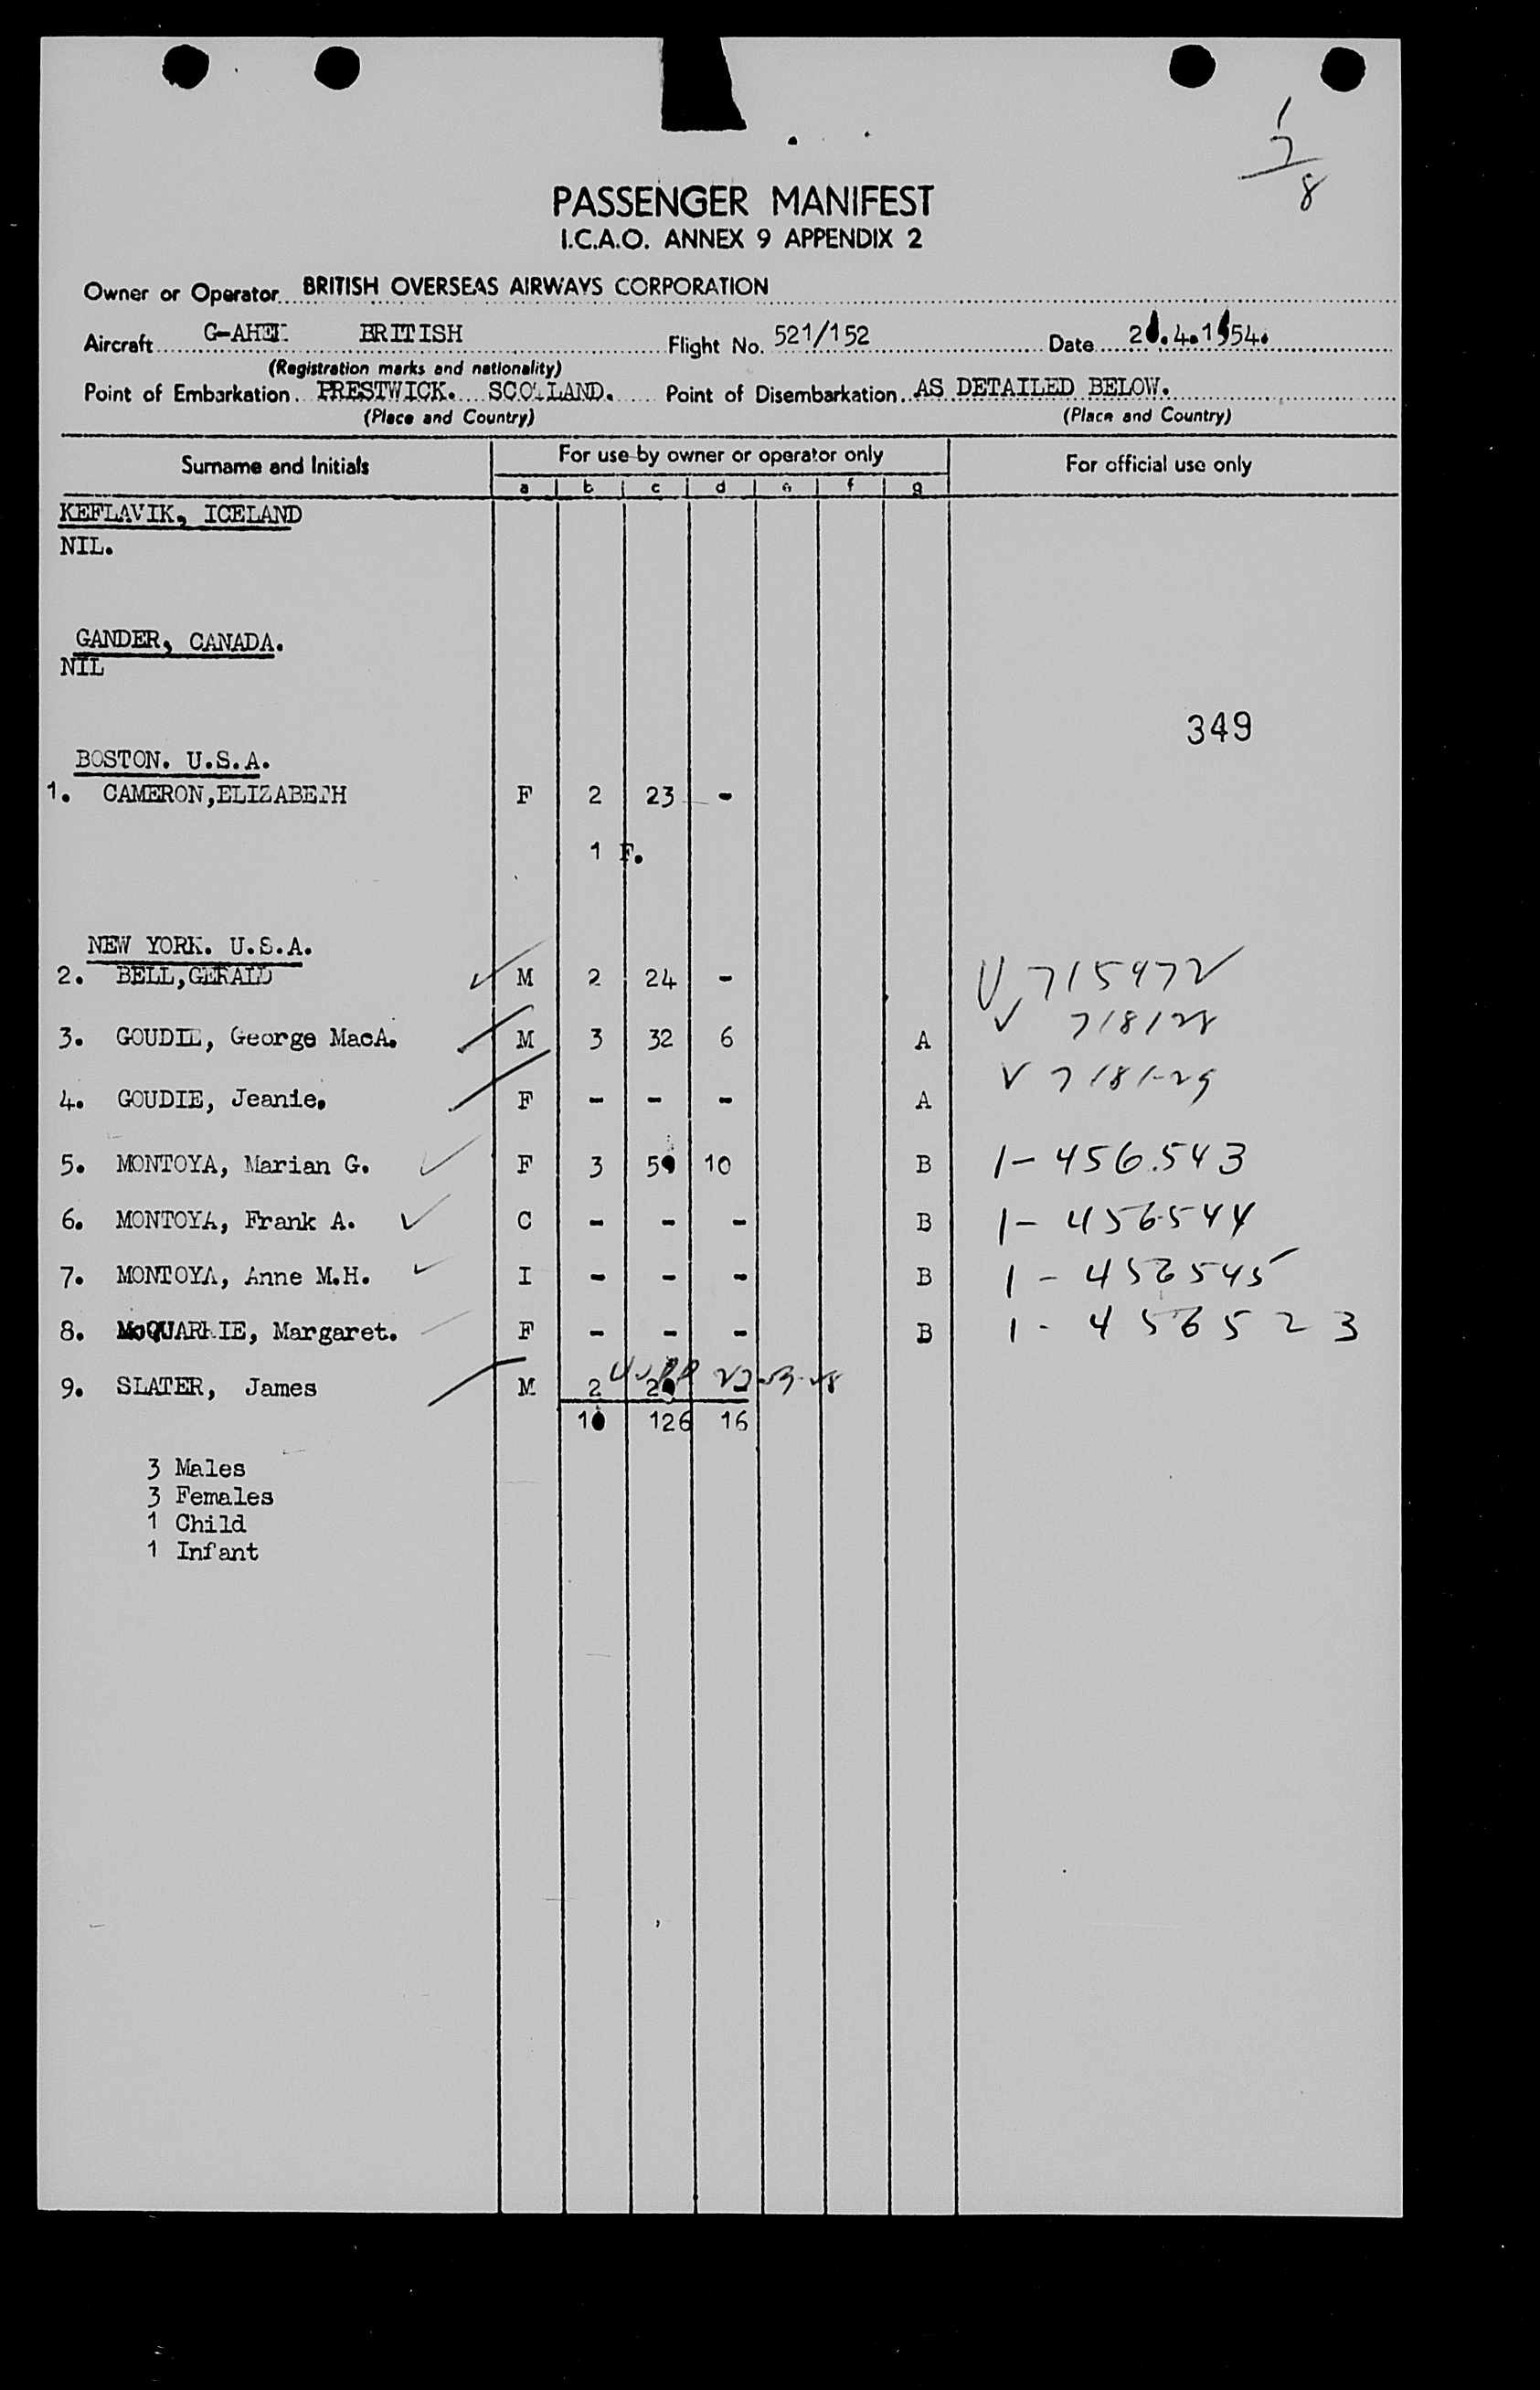 1
7
8
PASSENGER MANIFEST
I.C.A.O. ANNEX 9 APPENDIX 2
Owner or Operator BRITISH OVERSEAS AIRWAYS CORPORATION
Aircraft BRITISH Flight No. 521/152 Date
(Registration marks and nationality)
Point of Embarkation. PRESTWICK. SCOTLAND. Point of Disembarkation AS DETAILED BELOW.
(Place and Country) (Place and Country)
Surname and Initials For use by owner or operator only For official use only
a b c d e f g
KEFLAVIK, ICELAND
NIL.
GANDER, CANADA.
NIL
349
BOSTON. U.S.A.
1. CAMERON,ELIZABETH F 2 23 -
1 F.
NEW YORK. U.S.A.
2. BELL,GERALD M 2 24 - V 715972
3. GOUDIE, George MacA. M 3 32 6 A V 718128
4. GOUDIE, Jeanie. F - - - A V 718129
5. MONTOYA, Marian G. F 3 10 B 1-456543
6. MONTOYA, Frank A. C - - - B 1-456544
7. MONTOYA, Anne M.H. I - - - B 1-456545
8. McQUARRIE, Margaret. F - - - B 1-456523
9. SLATER, James M 2
126 16
3 Males
3 Females
1 Child
1 Infant